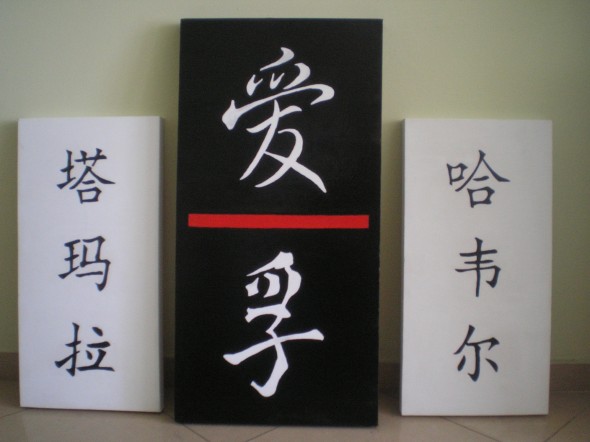 塔玛拉
爱
孚
哈韦尔